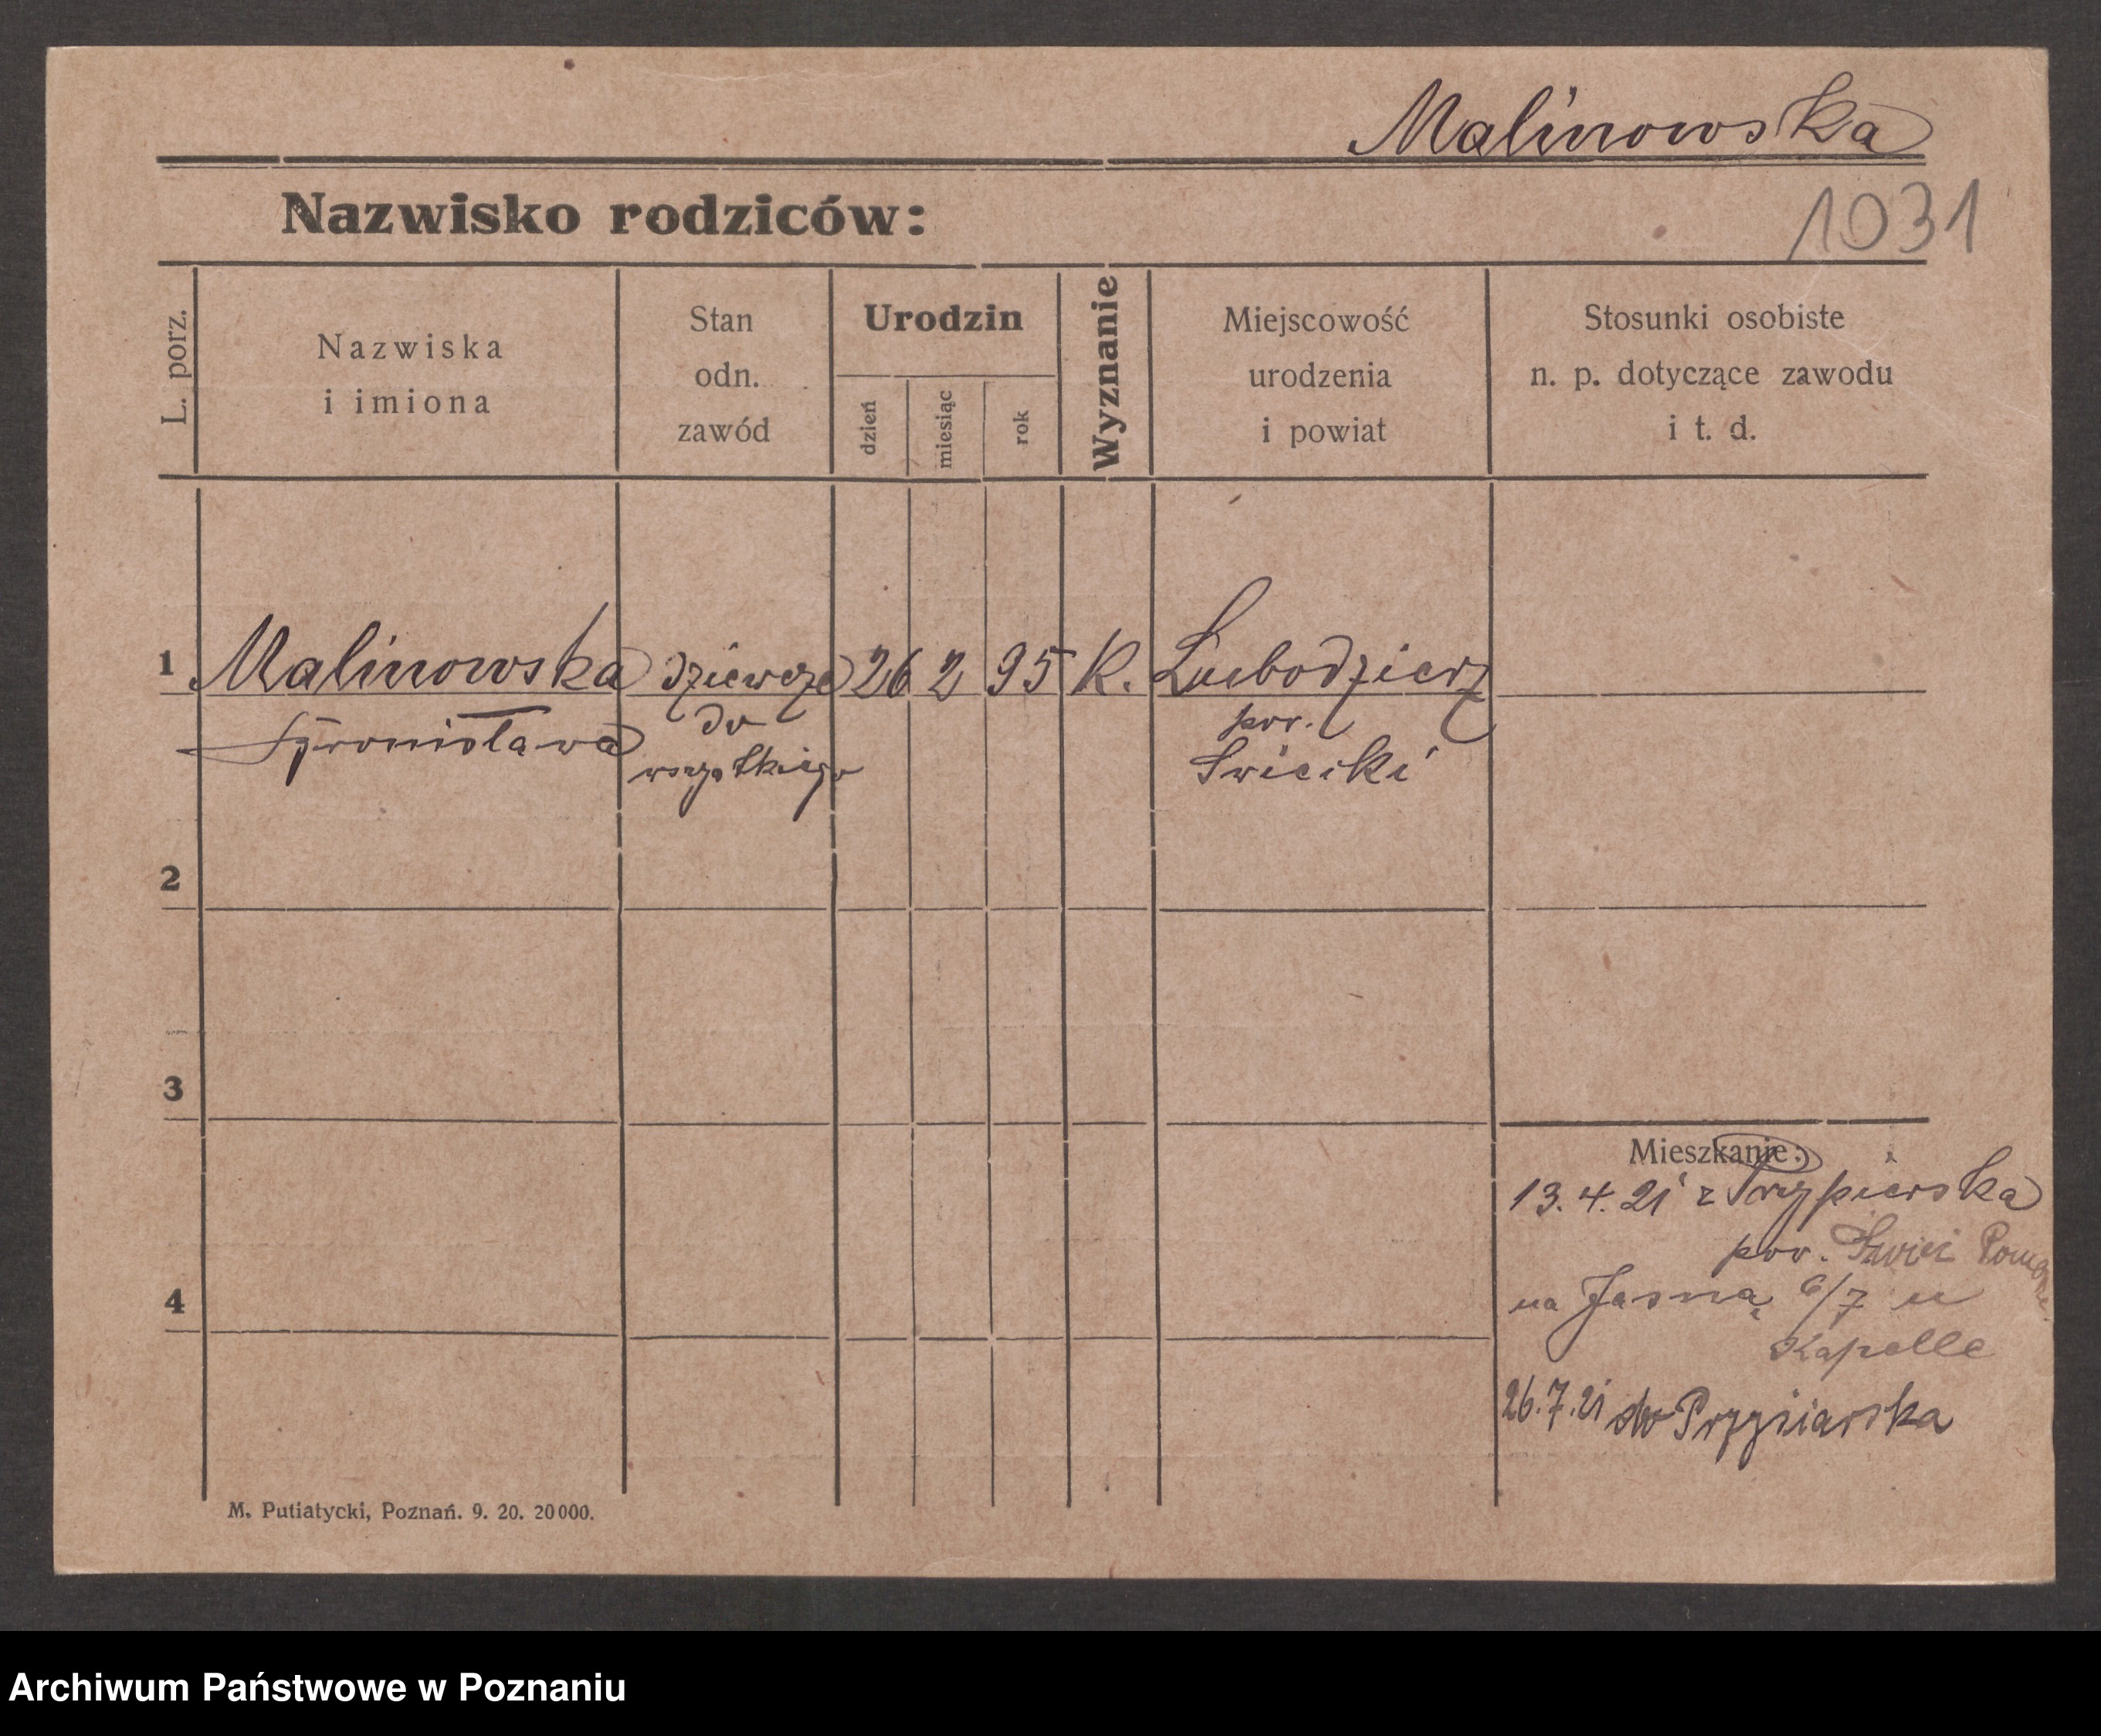 Malinowska
Nazwisko rodziców:
1031
L. porz.
Nazwiska
i imiona
Stan
odn.
zawód
Urodzin
dzień
miesiąc
rok
Wyznanie
Miejscowość
urodzenia
i powiat
Stosunki osobiste
n. p. dotyczące zawodu
i t. d.
1 Malinowska dziewczę 26 2 95 K. Lubodzierz
do pow.
wszystkiego Świecki
2
3
4
Mieszkanie:
13. 4. 21 z
pow. Świeć
na Jasną 6/7 u
Kapelle
26.7.21 do
M. Putiatycki, Poznań. 9. 20. 20000.
Archiwum Państwowe w Poznaniu